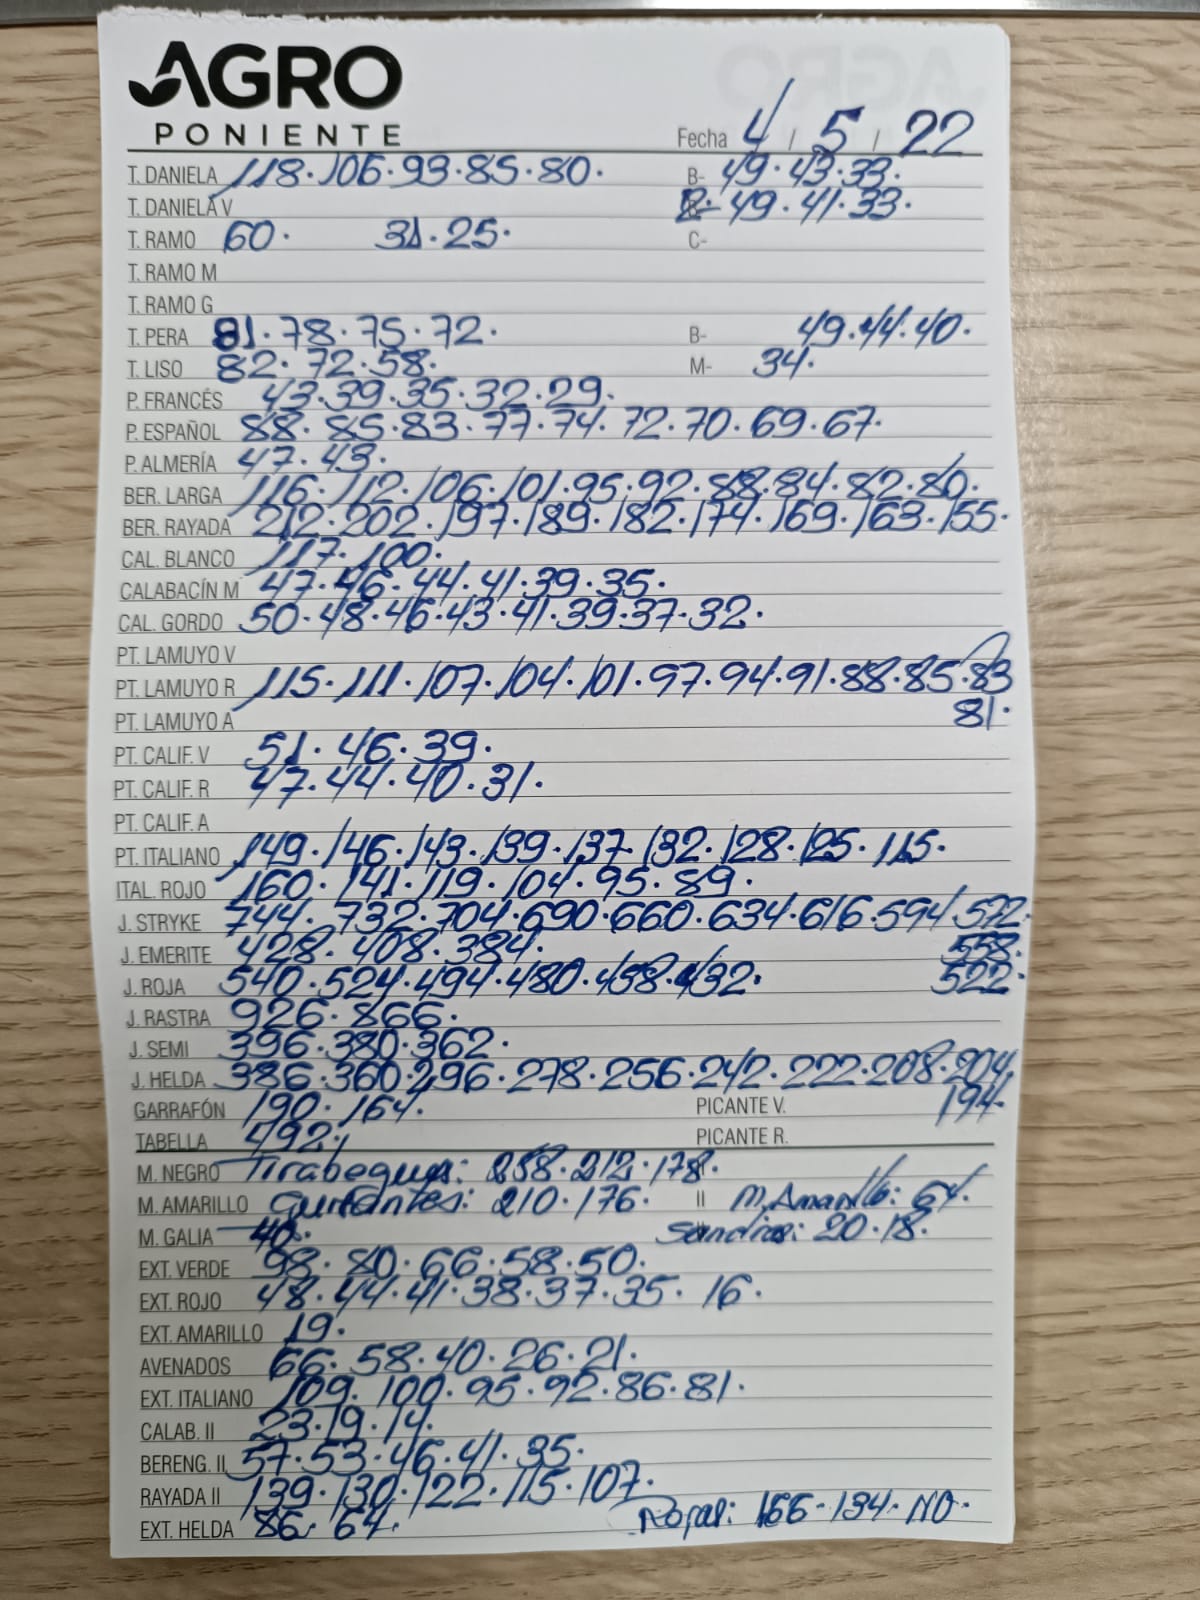 AGRO
PONIENTE
Fecha 4 / 5 / 22
T. DANIELA 118. 106. 93. 85. 80. B- 49. 43. 33.
T. DANIELA V R- 49. 41. 33.
T. RAMO 60. 31. 25. C-
T. RAMO M
T. RAMO G
T. PERA 81. 78. 75. 72. B- 49. 44. 40.
T. LISO 82. 72. 58. M- 34.
P. FRANCÉS 43. 39. 35. 32. 29.
P. ESPAÑOL 88. 85. 83. 77. 74. 72. 70. 69. 67.
P. ALMERÍA 47. 43.
BER. LARGA 116. 112. 106. 101. 95. 92. 88. 84. 82. 80.
BER. RAYADA 212. 202. 197. 189. 182. 174. 169. 163. 155.
CAL. BLANCO 117. 100.
CALABACÍN M 47. 46. 44. 41. 39. 35.
CAL. GORDO 50. 48. 46. 43. 41. 39. 37. 32.
PT. LAMUYO V
PT. LAMUYO R 115. 111. 107. 104. 101. 97. 94. 91. 88. 85. 83
PT. LAMUYO A 81.
PT. CALIF. V 51. 46. 39.
PT. CALIF. R 47. 44. 40. 31.
PT. CALIF. A
PT. ITALIANO 149. 146. 143. 139. 137. 132. 128. 125. 115.
ITAL. ROJO 160. 141. 119. 104. 95. 89.
J. STRYKE 744. 732. 704. 690. 660. 634. 616. 594. 572.
J. EMERITE 428. 408. 384. 558.
J. ROJA 540. 524. 494. 480. 458. 432. 522.
J. RASTRA 926. 866.
J. SEMI 396. 380. 362.
J. HELDA 386. 360. 296. 278. 256. 242. 222. 208. 204.
GARRAFÓN 190. 164. PICANTE V. 194.
TABELLA 492. PICANTE R.
M. NEGRO Tirabeques: 258. 212. 178. II
M. AMARILLO Guisantes: 210. 176. II M. Amarillo: 64.
M. GALIA 40. Sandias: 20. 18.
EXT. VERDE 98. 80. 66. 58. 50.
EXT. ROJO 48. 44. 41. 38. 37. 35. 16.
EXT. AMARILLO 19.
AVENADOS 66. 58. 40. 26. 21.
EXT. ITALIANO 109. 100. 95. 92. 86. 81.
CALAB. II 23. 19. 14.
BERENG. II 57. 53. 46. 41. 35.
RAYADA II 139. 130. 122. 115. 107.
EXT. HELDA 86. 64. Rojas: 166. 134. NO.